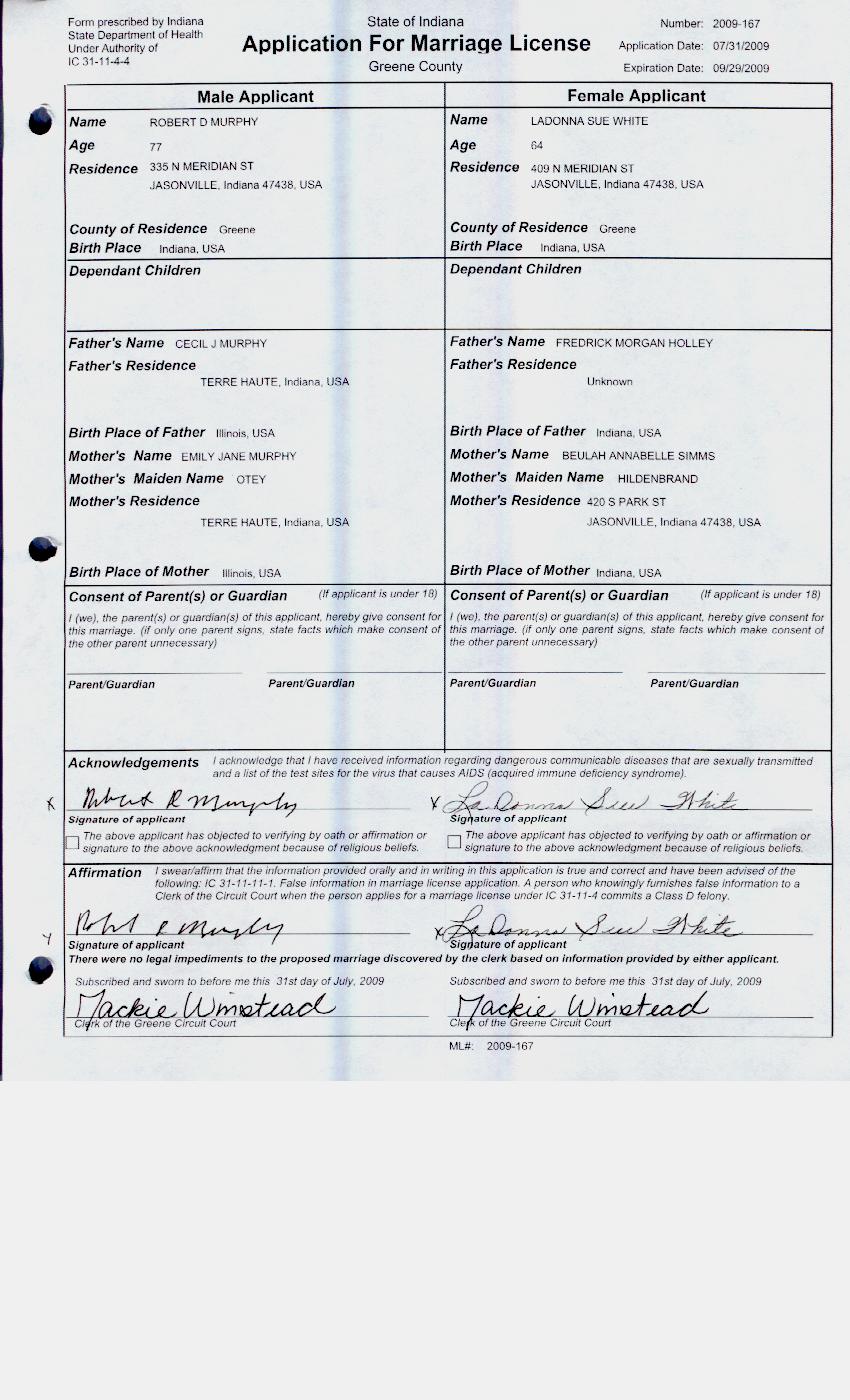 Form prescribed by Indiana
State Department of Health
Under Authority of
IC 31-11-4-4
State of Indiana
Application For Marriage License
Greene County
Number: 2009-167
Application Date: 07/31/2009
Expiration Date: 09/29/2009
Male Applicant
Name ROBERT D MURPHY
Age 77
Residence 335 N MERIDIAN ST
JASONVILLE, Indiana 47438, USA
County of Residence Greene
Birth Place Indiana, USA
Dependant Children
Father's Name CECIL J MURPHY
Father's Residence
TERRE HAUTE, Indiana, USA
Birth Place of Father Illinois, USA
Mother's Name EMILY JANE MURPHY
Mother's Maiden Name OTEY
Mother's Residence
TERRE HAUTE, Indiana, USA
Birth Place of Mother Illinois, USA
Consent of Parent(s) or Guardian (If applicant is under 18)
I (we), the parent(s) or guardian(s) of this applicant, hereby give consent for
this marriage. (if only one parent signs, state facts which make consent of
the other parent unnecessary)
Parent/Guardian Parent/Guardian
Female Applicant
Name LADONNA SUE WHITE
Age 64
Residence 409 N MERIDIAN ST
JASONVILLE, Indiana 47438, USA
County of Residence Greene
Birth Place Indiana, USA
Dependant Children
Father's Name FREDRICK MORGAN HOLLEY
Father's Residence
Unknown
Birth Place of Father Indiana, USA
Mother's Name BEULAH ANNABELLE SIMMS
Mother's Maiden Name HILDENBRAND
Mother's Residence 420 S PARK ST
JASONVILLE, Indiana 47438, USA
Birth Place of Mother Indiana, USA
Consent of Parent(s) or Guardian (If applicant is under 18)
I (we), the parent(s) or guardian(s) of this applicant, hereby give consent for
this marriage. (if only one parent signs, state facts which make consent of
the other parent unnecessary)
Parent/Guardian Parent/Guardian
Acknowledgements I acknowledge that I have received information regarding dangerous communicable diseases that are sexually transmitted
and a list of the test sites for the virus that causes AIDS (acquired immune deficiency syndrome).
x Robert D Murphy x LaDonna Sue White
Signature of applicant Signature of applicant
The above applicant has objected to verifying by oath or affirmation or
signature to the above acknowledgment because of religious beliefs.
The above applicant has objected to verifying by oath or affirmation or
signature to the above acknowledgment because of religious beliefs.
Affirmation I swear/affirm that the information provided orally and in writing in this application is true and correct and have been advised of the
following: IC 31-11-11-1. False information in marriage license application. A person who knowingly furnishes false information to a
Clerk of the Circuit Court when the person applies for a marriage license under IC 31-11-4 commits a Class D felony.
x Robert D Murphy x LaDonna Sue White
Signature of applicant Signature of applicant
There were no legal impediments to the proposed marriage discovered by the clerk based on information provided by either applicant.
Subscribed and sworn to before me this 31st day of July, 2009 Subscribed and sworn to before me this 31st day of July, 2009
Mackie Winstead Mackie Winstead
Clerk of the Greene Circuit Court Clerk of the Greene Circuit Court
ML#: 2009-167